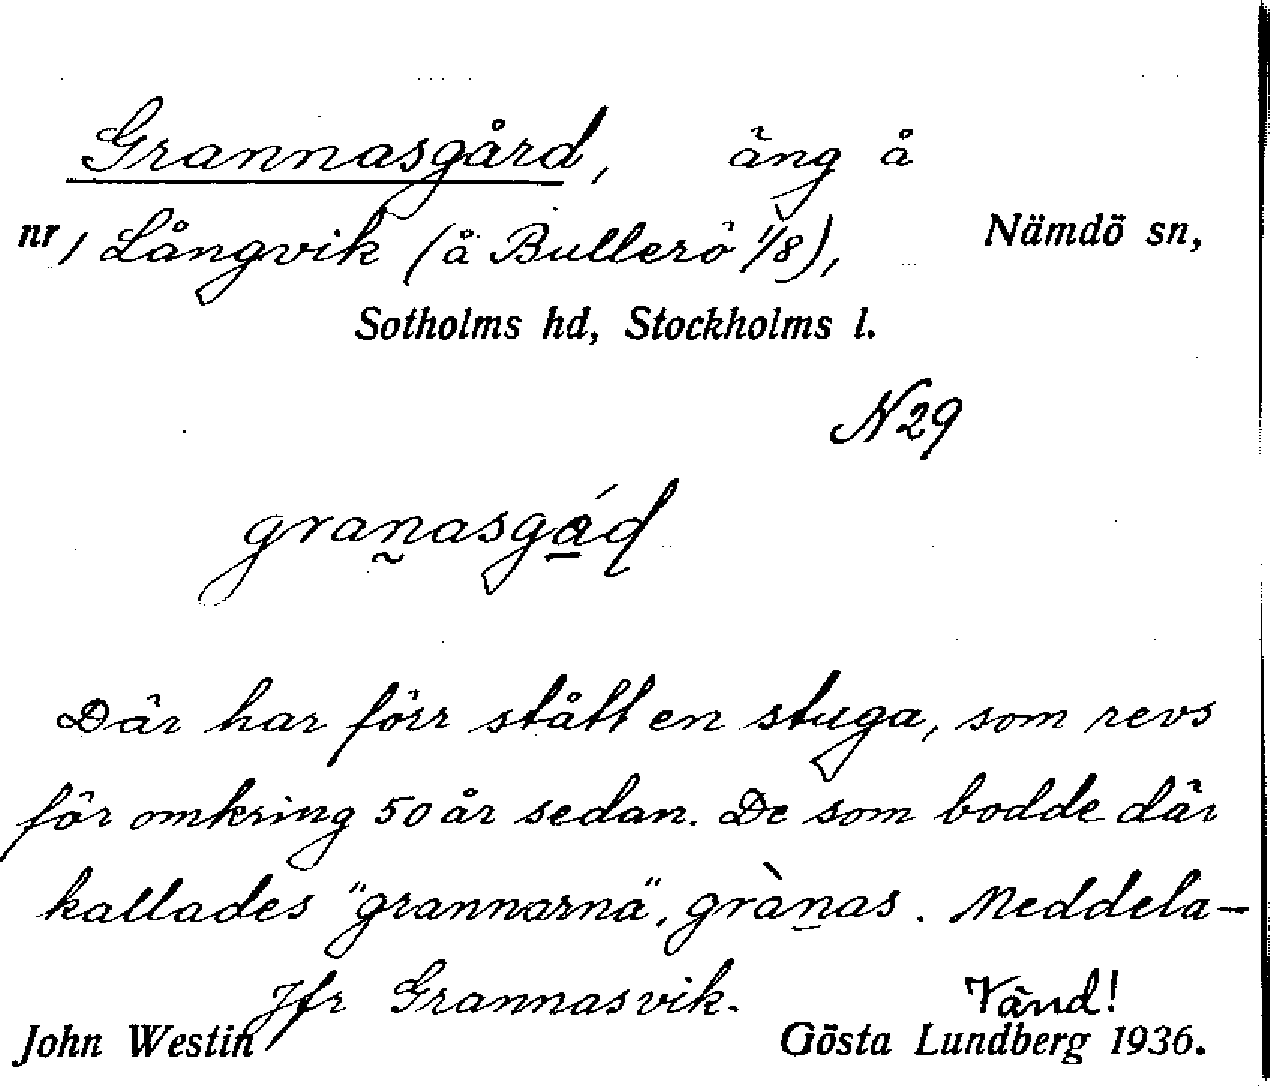 Grannasgård, äng å
nr, Långvik (å Bullerö 1/8), Nämdö sn,
Sotholms hd, Stockholms l.
N29
granasgád
Där har förr stått en stuga, som revs
för omkring 50 år sedan. De som bodde där
kallades "grannarna", grànas. Meddela-
Jfr Grannasvik. Vänd!
John Westin Gösta Lundberg 1936.